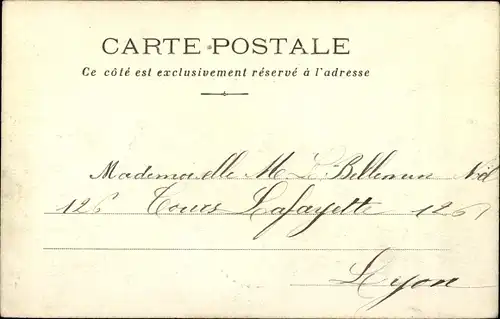 CARTE POSTALE
Ce côté est exclusivement réservé à l'adresse
Mademoiselle M L
126 Cours Lafayette 126
Lyon